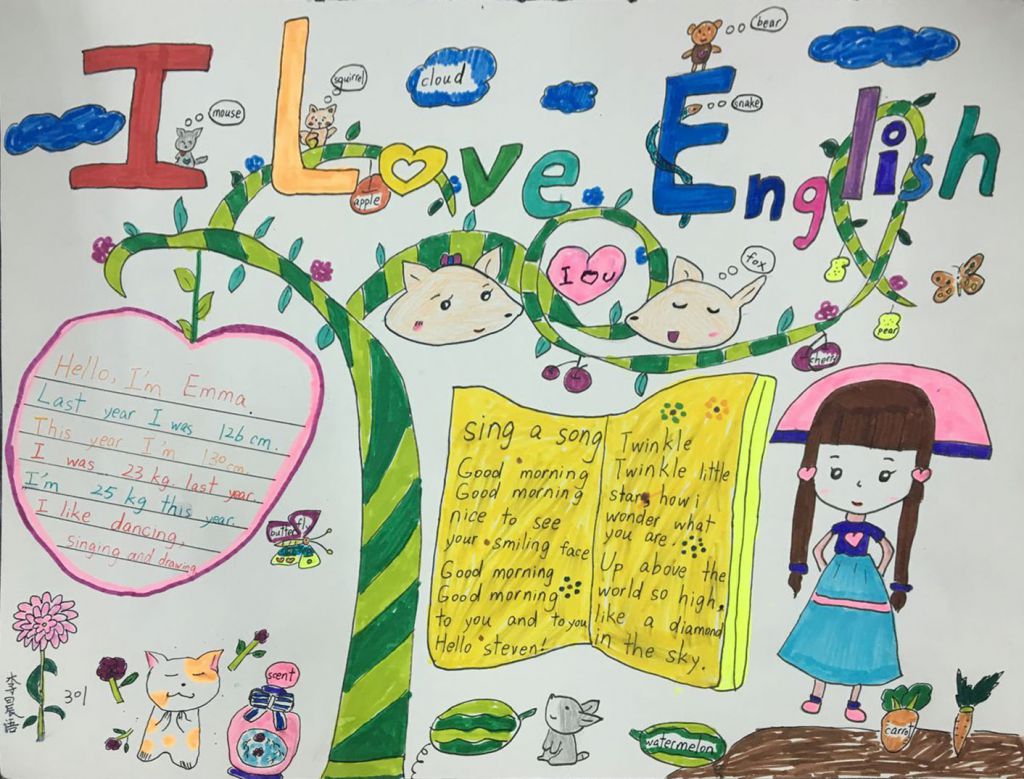 bear
squirrel
cloud
mouse
snake
I Love English
apple
fox
I u
pear
Hello, I'm Emma.
Last year I was 126 cm.
This year I'm 130 cm
I was 23 kg. last year.
I'm 25 kg this year.
I like dancing,
singing and drawing
sing a song
Good morning
Good morning
nice to see
your smiling face
Good morning
Good morning
to you and to you
Hello steven!
Twinkle
Twinkle little
star, how i
wonder what
you are!
Up above the
world so high,
like a diamond
in the sky.
scent
301
watermelon
carrot